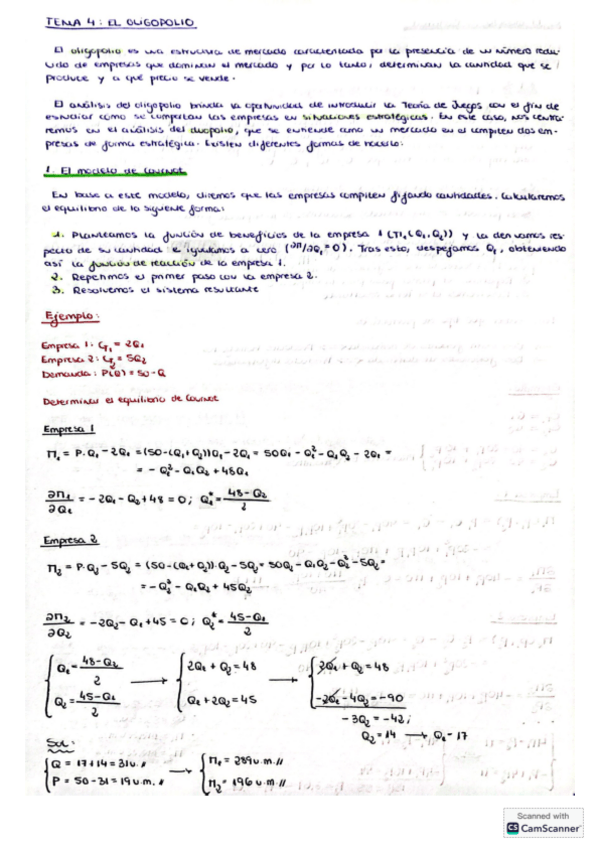 TEMA 4: EL OLIGOPOLIO
El oligopolio es una estructura de mercado caracterizada por la presencia de un número redu-
cido de empresas que dominan el mercado y por lo tanto, determinan la cantidad que se
produce y a qué precio se vende.
El análisis del oligopolio brinda la oportunidad de introducir la Teoría de Juegos con el fin de
estudiar cómo se comportan las empresas en situaciones estratégicas. En este caso, nos centra-
remos en el análisis del duopolio, que se entiende como un mercado en el compiten dos em-
presas de forma estratégica. Existen diferentes formas de hacerlo:
1. El modelo de Cournot
En base a este modelo, diremos que las empresas compiten fijando cantidades. Calcularemos
el equilibrio de la siguiente forma:
1. Planteamos la función de beneficios de la empresa 1 (Π1(Q1,Q2)) y la derivamos res-
pecto de su cantidad e igualamos a cero (∂Π/∂Q1=0). Tras esto, despejamos Q1, obteniendo
así la función de reacción de la empresa 1.
2. Repetimos el primer paso con la empresa 2.
3. Resolvemos el sistema resultante
Ejemplo:
Empresa 1: CT1 = 2Q1
Empresa 2: CT2 = 5Q2
Demanda: P(Q) = 50-Q
Determinar el equilibrio de Cournot
Empresa 1
Π1 = P·Q1 - 2Q1 = (50-(Q1+Q2))Q1 - 2Q1 = 50Q1 - Q1² - Q1Q2 - 2Q1 =
= - Q1² - Q1Q2 + 48Q1
∂Π1/∂Q1 = -2Q1 - Q2 + 48 = 0; Q1* = (48-Q2)/2
Empresa 2
Π2 = P·Q2 - 5Q2 = (50-(Q1+Q2))·Q2 - 5Q2 = 50Q2 - Q1Q2 - Q2² - 5Q2 =
= - Q2² - Q1Q2 + 45Q2
∂Π2/∂Q2 = -2Q2 - Q1 + 45 = 0; Q2* = (45-Q1)/2
Q1 = (48-Q2)/2 → 2Q1 + Q2 = 48 → 2Q1 + Q2 = 48
Q2 = (45-Q1)/2 Q1 + 2Q2 = 45 -2Q1 - 4Q2 = -90
-3Q2 = -42;
Q2 = 14 → Q1 = 17
Sol:
Q = 17+14 = 31u. // → Π1 = 289u.m. //
P = 50-31 = 19u.m. // Π2 = 196u.m. //
Scanned with
CS CamScanner